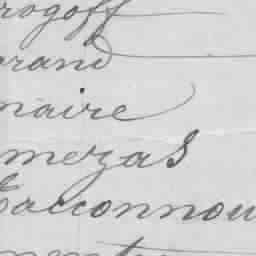 rogoff
orand
naire
mezas
Tacconnou